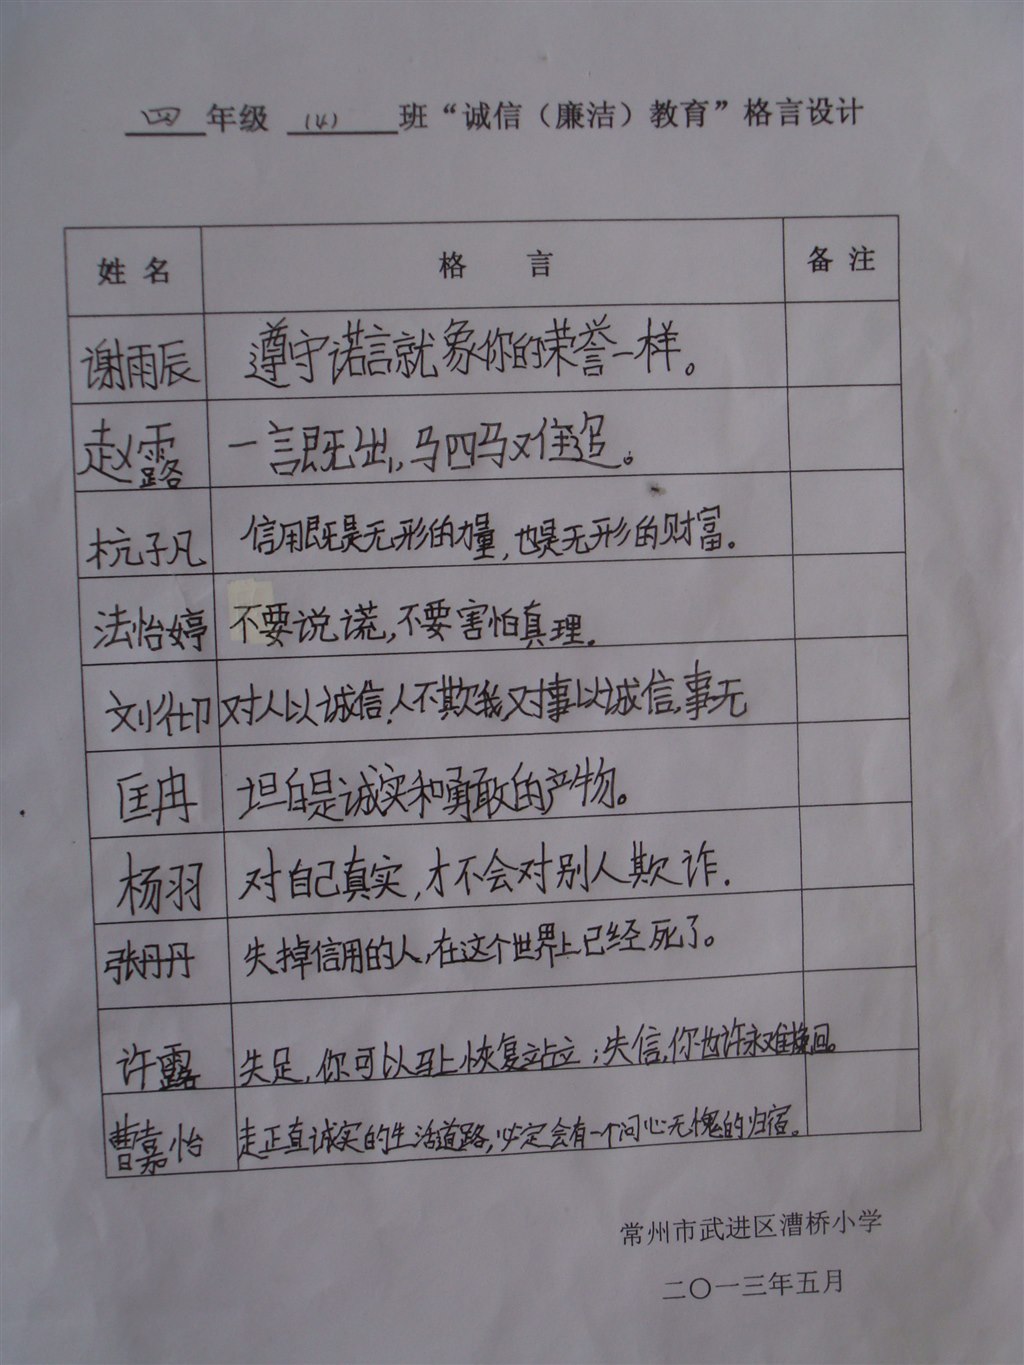 四年级 (4) 班“诚信（廉洁）教育”格言设计
姓 名 格 言 备 注
谢雨辰 遵守诺言就象你的荣誉一样。
赵露 一言既出，马四马又住追。
杭子凡 信用既是无形的力量，也是无形的财富。
法怡婷 不要说谎，不要害怕真理.
刘仕卬 对人以诚信，人不欺我，对事以诚信，事无
匡冉 坦白是诚实和勇敢的产物。
杨羽 对自己真实，才不会对别人欺诈.
张丹丹 失掉信用的人，在这个世界上已经死了。
许露 失足，你可以马上恢复站立；失信，你也许永难挽回。
曹嘉怡 走正直诚实的生活道路，必定会有一个问心无愧的归宿。
常州市武进区漕桥小学
二〇一三年五月